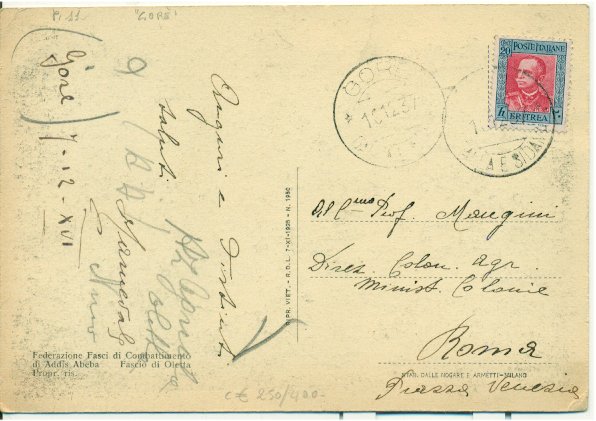 P. 11 "GORE"
Gore 7-12-XVI
Auguri e Distinti
saluti
Federazione Fasci di Combattimento
di Addis Abeba Fascio di Oletta
Propr. ris.
RIPR. VIET. - R. D. L. 7-XI-1925 - N. 1950
GORE
10.12.37
POSTE ITALIANE
20
ERITREA
A E SIDAM
All'Ill.mo Prof. Mangini
Direz. Colon. agr.
Minist. Colonie
Roma
Piazza Venezia
STAB. DALLE NOGARE E ARMETTI-MILANO
C € 250/400-